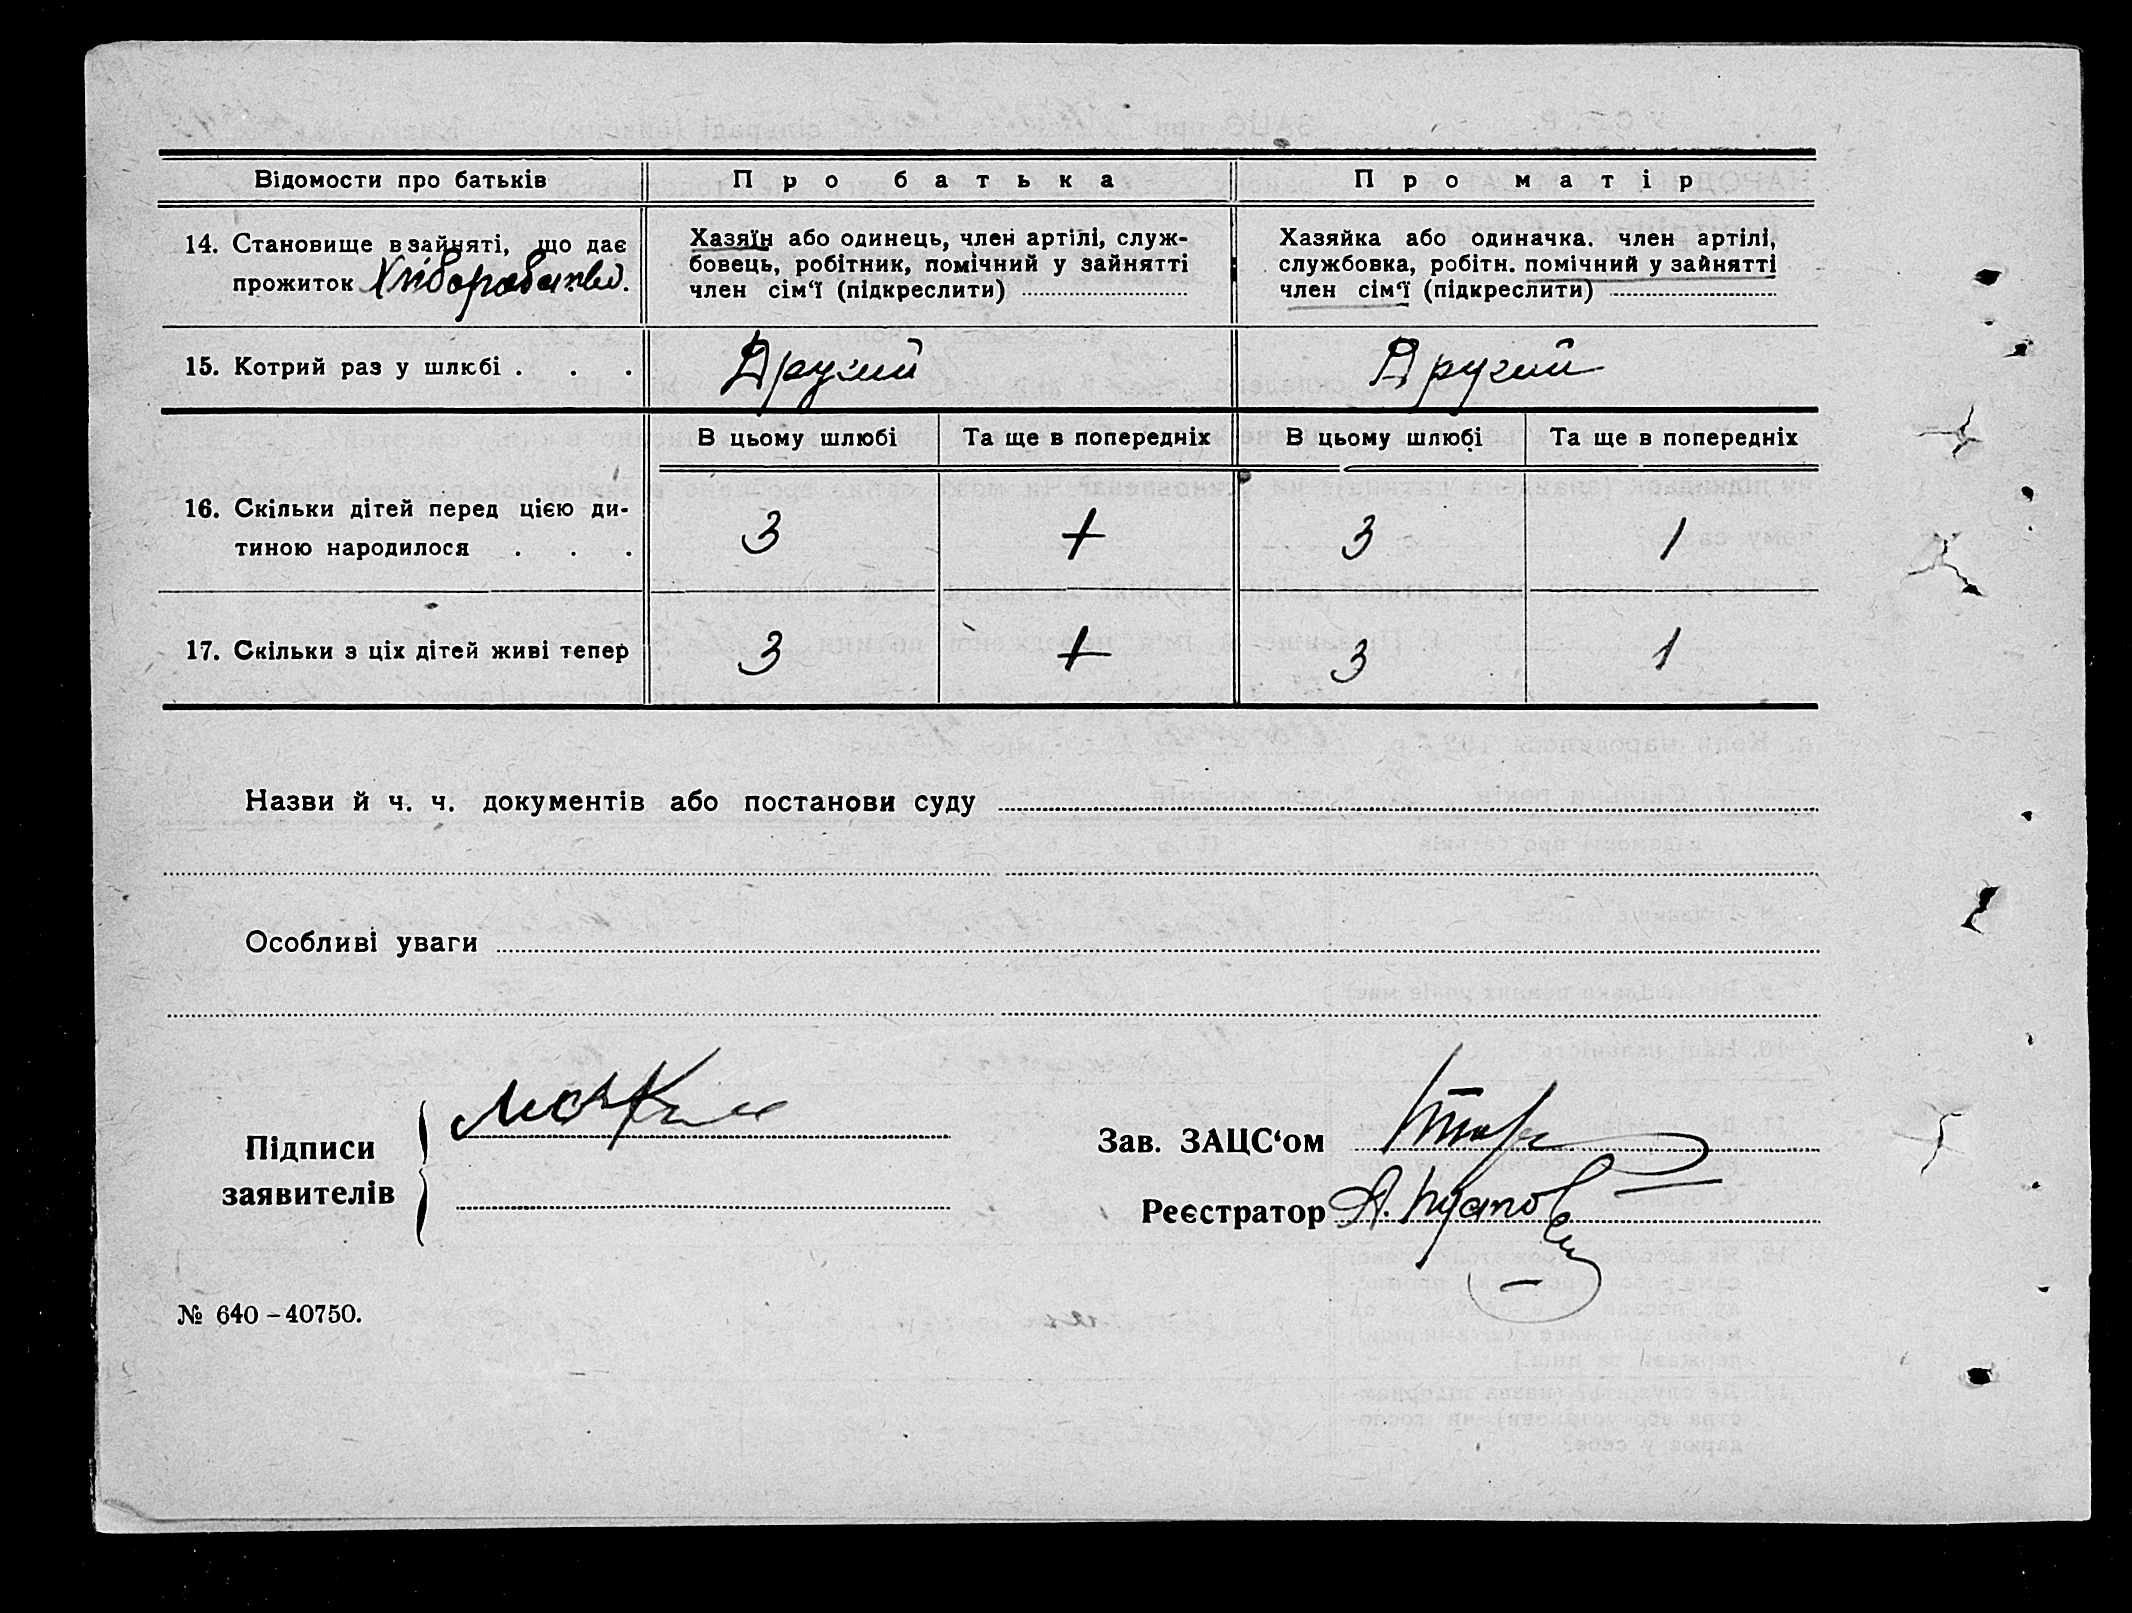 Відомости про батьків
Про батька
Про матір
14. Становище в зайняті, що дає
прожиток Хліборобство.
Хазяїн або одинець, член артілі, служ-
бовець, робітник, помічний у зайнятті
член сім'ї (підкреслити)
Хазяйка або одиначка. член артілі,
службовка, робітн. помічний у зайнятті
член сім'ї (підкреслити)
15. Котрий раз у шлюбі . . .
Другий
Другий
В цьому шлюбі
Та ще в попередніх
В цьому шлюбі
Та ще в попередніх
16. Скільки дітей перед цією ди-
тиною народилося . . .
3
+
3
1
17. Скільки з ціх дітей живі тепер
3
+
3
1
Назви й ч. ч. документів або постанови суду
Особливі уваги
Підписи
заявителів
Зав. ЗАЦС'ом
Реєстратор
№ 640-40750.